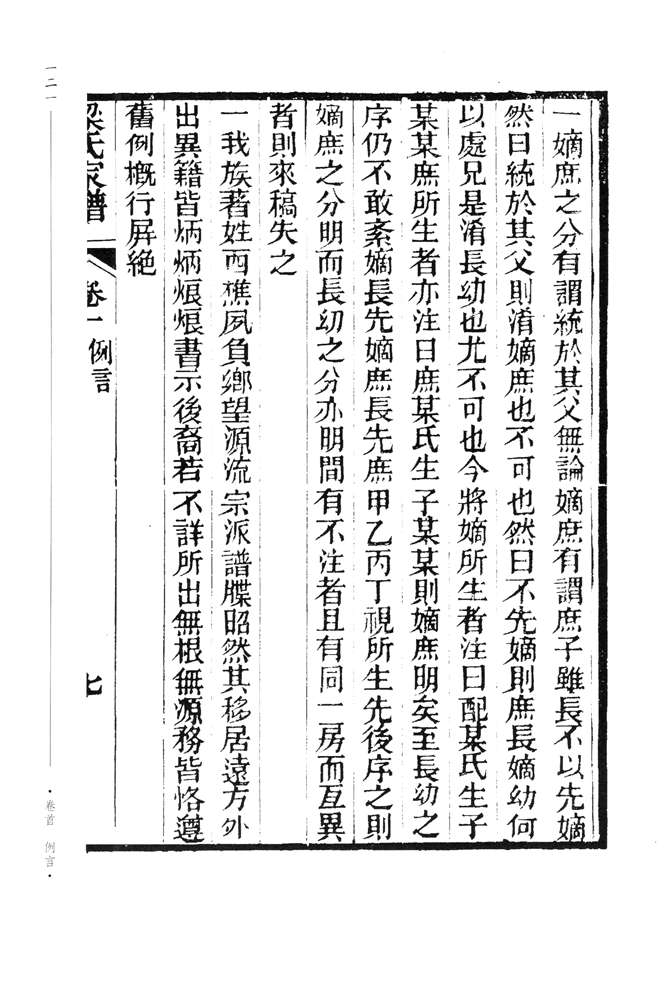 一嫡庶之分有謂統於其父無論嫡庶有謂庶子雖長不以先嫡
然曰統於其父則淆嫡庶也不可也然曰不先嫡則庶長嫡幼何
以處兄是淆長幼也尤不可也今將嫡所生者注曰配某氏生子
某某庶所生者亦注曰庶某氏生子某某則嫡庶明矣至長幼之
序仍不敢紊嫡長先嫡庶長先庶甲乙丙丁視所生先後序之則
嫡庶之分明而長幼之分亦明間有不注者且有同一房而互異
者則來稿失之
一我族著姓西樵夙負鄉望源流宗派譜牒昭然其移居遠方外
出異籍皆炳炳烺烺書示後裔若不詳所出無根無源務皆恪遵
舊例概行屏絕
梁氏家譜 卷一 例言 七
一二一
·卷首 例言·